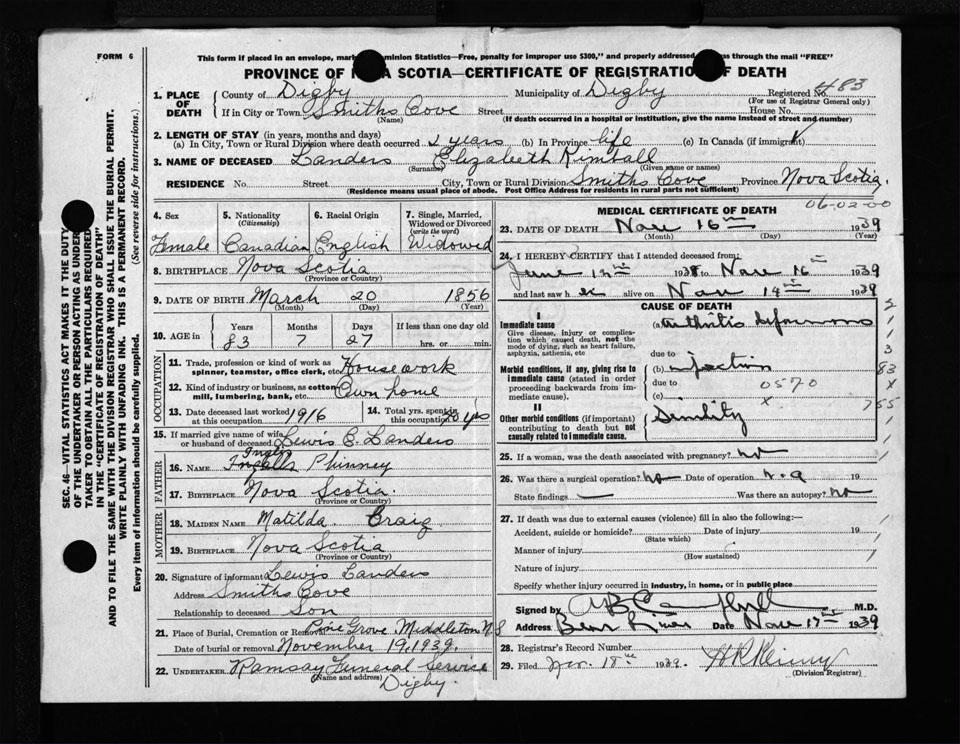 FORM 6
This form if placed in an envelope, mar Dominion Statistics—Free, penalty for improper use $300," and properly addressed through the mail "FREE"
PROVINCE OF NOVA SCOTIA—CERTIFICATE OF REGISTRATION OF DEATH
483
1. PLACE OF DEATH County of Digby Municipality of Digby Registered No.
(For use of Registrar General only)
If in City or Town Smiths Cove Street House No.
(Name) (If death occurred in a hospital or institution, give the name instead of street and number)
2. LENGTH OF STAY (in years, months and days)
(a) In City, Town or Rural Division where death occurred 2 years (b) In Province life (c) In Canada (if immigrant)
3. NAME OF DECEASED Landers Elizabeth Kimball
(Surname) (Given name or names)
RESIDENCE No. Street City, Town or Rural Division Smiths Cove Province Nova Scotia.
(Residence means usual place of abode. Post Office Address for residents in rural parts not sufficient)
06-02-00
4. Sex 5. Nationality (Citizenship) 6. Racial Origin 7. Single, Married, Widowed or Divorced (write the word)
Female Canadian English Widowed
8. BIRTHPLACE Nova Scotia
(Province or Country)
9. DATE OF BIRTH March 20 1856
(Month) (Day) (Year)
10. AGE in Years Months Days If less than one day old
83 7 27 hrs. or min.
OCCUPATION
11. Trade, profession or kind of work as spinner, teamster, office clerk, etc. House work
12. Kind of industry or business, as cotton mill, lumbering, bank, etc. Own home
13. Date deceased last worked at this occupation 1916 14. Total yrs. spent in this occupation 30 yrs
15. If married give name of wife or husband of deceased Lewis C. Landers
FATHER
16. NAME Ingalls Phinney
17. BIRTHPLACE Nova Scotia.
(Province or Country)
MOTHER
18. MAIDEN NAME Matilda Craig
19. BIRTHPLACE Nova Scotia
(Province or Country)
20. Signature of informant Lewis Landers
Address Smiths Cove
Relationship to deceased Son
21. Place of Burial, Cremation or Removal Pine Grove Middleton N S
Date of burial or removal November 19, 1939.
22. UNDERTAKER Ramsay Funeral Service
(Name and address) Digby.
MEDICAL CERTIFICATE OF DEATH
23. DATE OF DEATH Nov 16th 1939
(Month) (Day) (Year)
24. I HEREBY CERTIFY that I attended deceased from:
June 12th 1938 to Nov 16th 1939
and last saw h er alive on Nov 14th 1939
CAUSE OF DEATH
I
Immediate cause (a) arthritis deformans
Give disease, injury or complication which caused death, not the mode of dying, such as heart failure, asphyxia, asthenia, etc
due to
Morbid conditions, if any, giving rise to immediate cause (stated in order proceeding backwards from immediate cause). (b) infection
due to 0570
(c) x
II
Other morbid conditions (if important) contributing to death but not causally related to immediate cause. Senility
2
1
1
3
83
x
755
1
25. If a woman, was the death associated with pregnancy? no
26. Was there a surgical operation? no Date of operation n.a 19
State findings — Was there an autopsy? no
27. If death was due to external causes (violence) fill in also the following:—
Accident, suicide or homicide? Date of injury 19
(State which)
Manner of injury
(How sustained)
Nature of injury
Specify whether injury occurred in industry, in home, or in public place
Signed by M.D.
Address Bear River Date Nov 17th 1939
28. Registrar's Record Number
29. Filed Nov. 18th 1939.
(Division Registrar)
SEC. 46—VITAL STATISTICS ACT MAKES IT THE DUTY
OF THE UNDERTAKER OR PERSON ACTING AS UNDERTAKER TO OBTAIN ALL THE PARTICULARS REQUIRED
IN THE "CERTIFICATE OF REGISTRATION OF DEATH"
AND TO FILE THE SAME WITH THE DIVISION REGISTRAR WHO SHALL ISSUE THE BURIAL PERMIT.
WRITE PLAINLY WITH UNFADING INK. THIS IS A PERMANENT RECORD.
Every item of information should be carefully supplied. (See reverse side for instructions.)